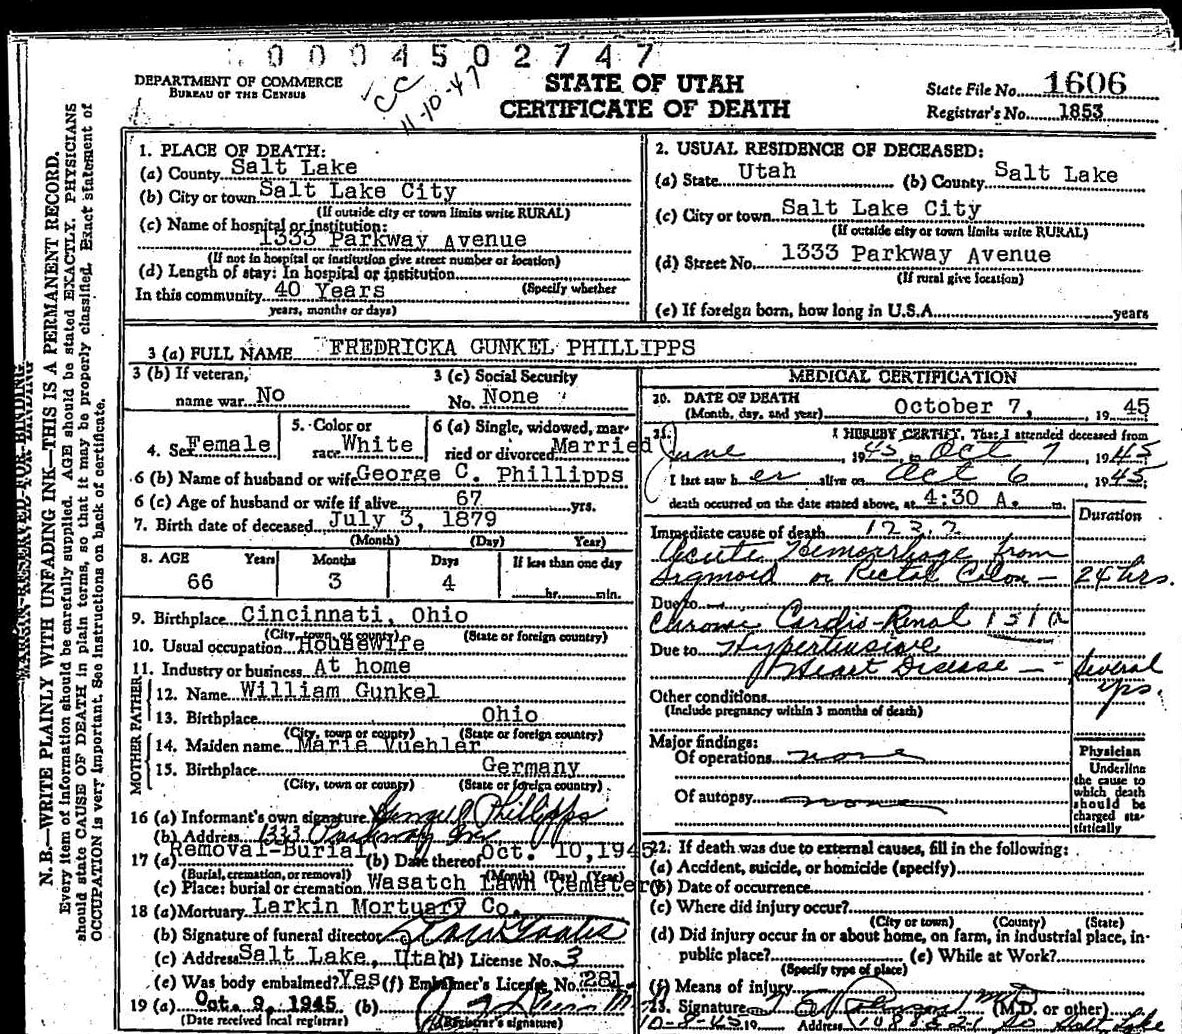 0004502747
CC
11-10-47
DEPARTMENT OF COMMERCE
BUREAU OF THE CENSUS
STATE OF UTAH
CERTIFICATE OF DEATH
State File No. 1606
Registrar's No. 1853
MARGIN RESERVED FOR BINDING
N. B.—WRITE PLAINLY WITH UNFADING INK—THIS IS A PERMANENT RECORD.
Every item of information should be carefully supplied. AGE should be stated EXACTLY. PHYSICIANS
should state CAUSE OF DEATH in plain terms, so that it may be properly classified. Exact statement of
OCCUPATION is very important. See instructions on back of certificate.
1. PLACE OF DEATH:
(a) County Salt Lake
(b) City or town Salt Lake City
(If outside city or town limits write RURAL)
(c) Name of hospital or institution:
1333 Parkway Avenue
(If not in hospital or institution give street number or location)
(d) Length of stay: In hospital or institution
(Specify whether
In this community 40 Years
years, months or days)
2. USUAL RESIDENCE OF DECEASED:
(a) State Utah (b) County Salt Lake
(c) City or town Salt Lake City
(If outside city or town limits write RURAL)
(d) Street No. 1333 Parkway Avenue
(If rural give location)
(e) If foreign born, how long in U.S.A. years
3 (a) FULL NAME FREDRICKA GUNKEL PHILLIPPS
3 (b) If veteran, 3 (c) Social Security
name war No No. None
4. Sex Female 5. Color or race White 6 (a) Single, widowed, married or divorced Married
6 (b) Name of husband or wife George C. Phillipps
6 (c) Age of husband or wife if alive 67 yrs.
7. Birth date of deceased July 3, 1879
(Month) (Day) Year)
8. AGE Years Months Days If less than one day
66 3 4 hr. min.
9. Birthplace Cincinnati, Ohio
(City, town, or county) (State or foreign country)
10. Usual occupation Housewife
11. Industry or business At home
FATHER
12. Name William Gunkel
13. Birthplace Ohio
(City, town or county) (State or foreign country)
MOTHER
14. Maiden name Marie Vuehler
15. Birthplace Germany
(City, town or county) (State or foreign country)
16 (a) Informant's own signature Phillipps
(b) Address 1333 Parkway Ave
17 (a) Removal-Burial (b) Date thereof Oct. 10, 1945
(Burial, cremation, or removal) (Month) (Day) (Year)
(c) Place: burial or cremation Wasatch Lawn Cemetery
18 (a) Mortuary Larkin Mortuary Co.
(b) Signature of funeral director
(c) Address Salt Lake, Utah (d) License No. 3
(e) Was body embalmed? Yes (f) Embalmer's License No. 281
19 (a) Oct. 9, 1945 (b)
(Date received local registrar) (Registrar's signature)
MEDICAL CERTIFICATION
20. DATE OF DEATH
(Month, day, and year) October 7, 1945
21. I HEREBY CERTIFY, That I attended deceased from
June 1945 to Oct 7 1945
I last saw her alive on Oct 6 1945;
death occurred on the date stated above, at 4:30 A. m.
Duration
Immediate cause of death 123.2
Acute Hemorrhage from
Sigmoid or Rectal Colon — 24 hrs.
Due to
Chronic Cardio-Renal 131a
Due to Hypertensive
Heart Disease — Several
yrs.
Other conditions
(Include pregnancy within 3 months of death)
Major findings:
Of operations none
Of autopsy none
Physician
Underline
the cause to
which death
should be
charged sta-
tistically
22. If death was due to external causes, fill in the following:
(a) Accident, suicide, or homicide (specify)
(b) Date of occurrence
(c) Where did injury occur?
(City or town) (County) (State)
(d) Did injury occur in or about home, on farm, in industrial place, in-
public place? (e) While at Work?
(Specify type of place)
(f) Means of injury
23. Signature (M.D. or other)
10-8-45 19 Address Salt Lake